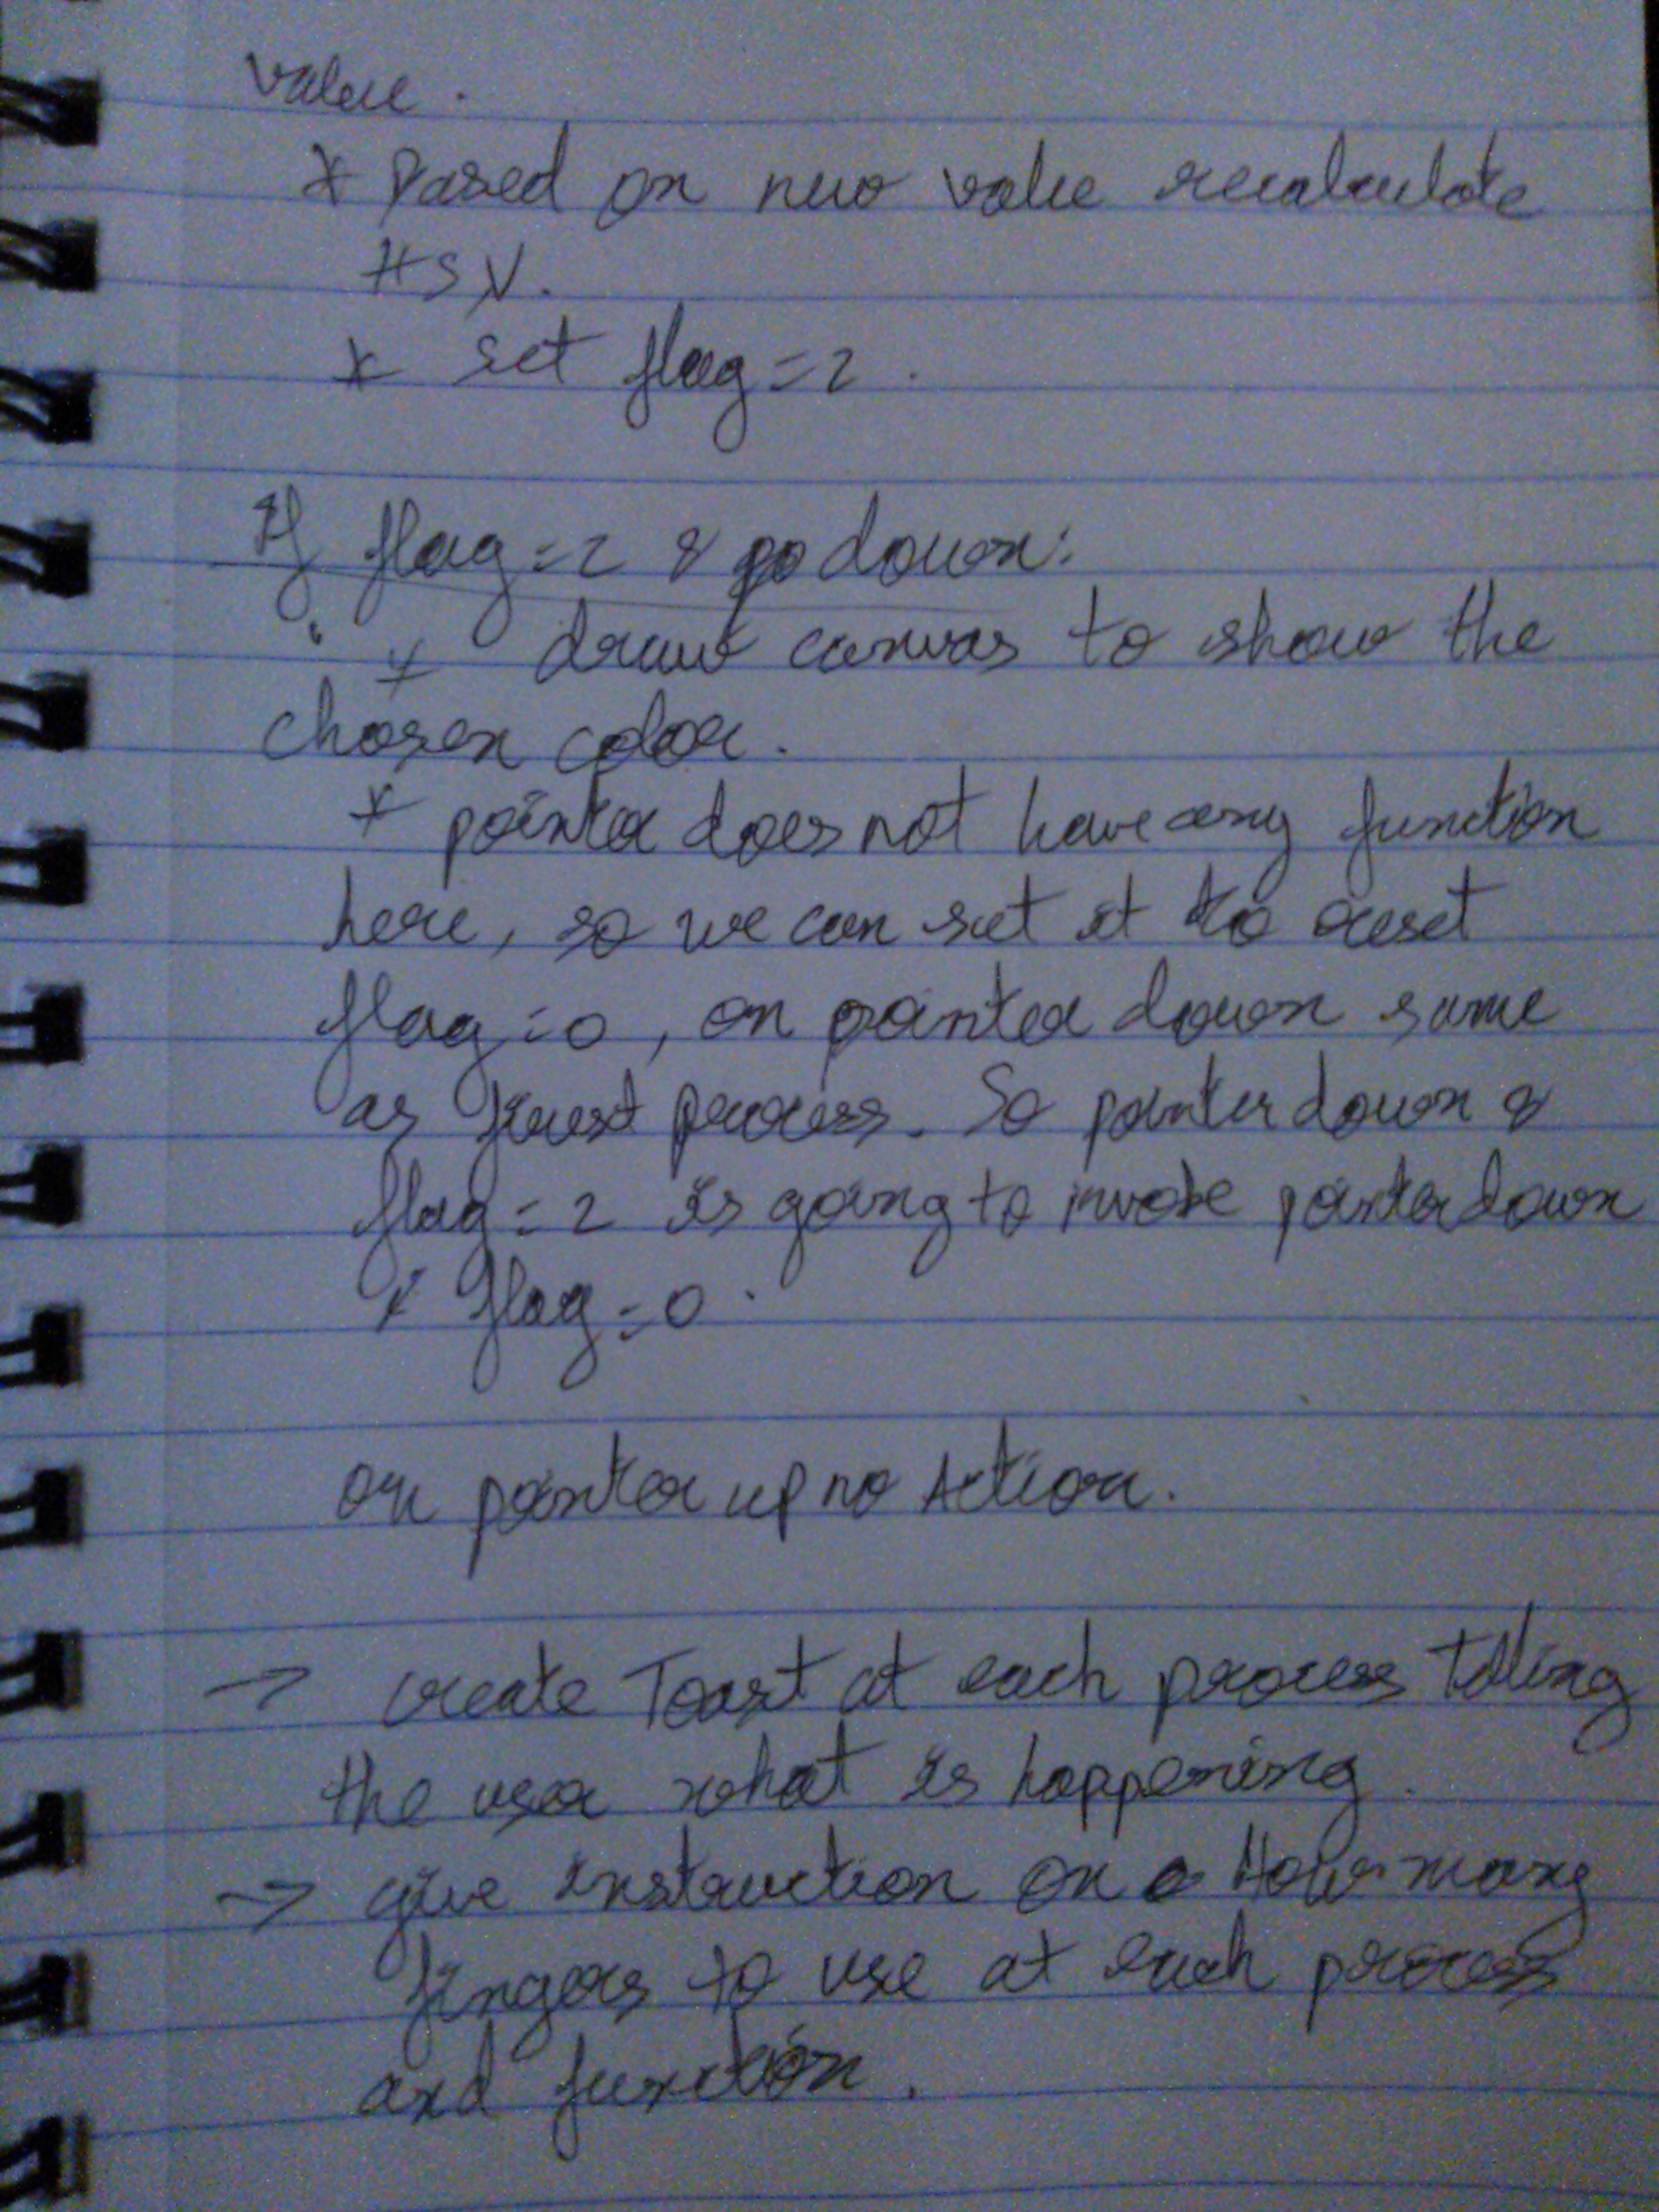 value.
* Based on new value recalculate
HSV.
* set flag=2.
If flag=2 & go down:
* draw canvas to show the
chosen color.
* pointer does not have any function
here, so we can set it to reset
flag=0, on pointer down same
as first process. So pointer down &
flag=2 is going to invoke pointer down
& flag=0.
on pointer up no Action.
→ create Toast at each process telling
the user what is happening.
→ give instruction on How many
fingers to use at each process
and function.